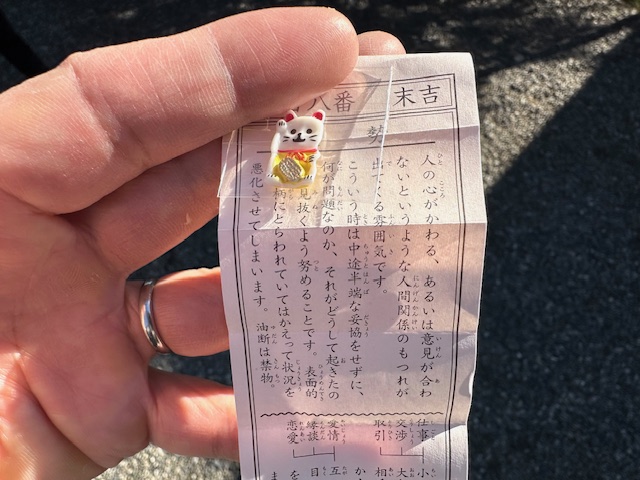 八番 末吉
人の心がかわる、あるいは意見が合わ
ないというような人間関係のもつれが
出てくる雰囲気です。
こういう時は中途半端な妥協をせずに、
何が問題なのか、それがどうして起きたの
見抜くよう努めることです。表面的
にとらわれていてはかえって状況を
悪化させてしまいます。油断は禁物。
仕事
交渉
取引
愛情
縁談
恋愛